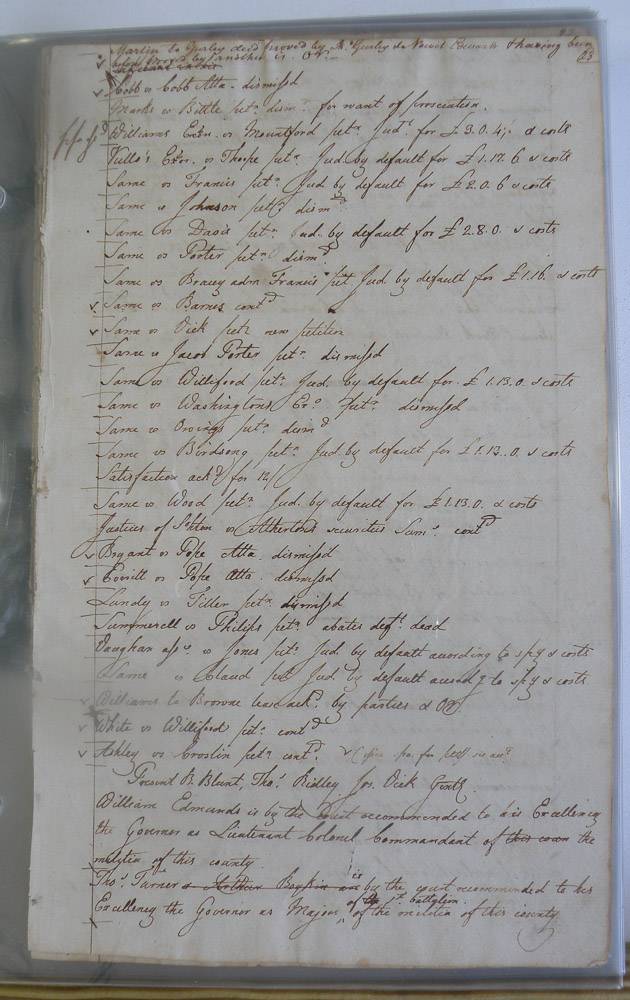 Martin to Gurley deed proved by A. Gurley & having been
before proved by another is OR
23
Cobb vs Cobb Atta. dismissd
Marks vs Bittle petn. dismd. for want of prosecution.
Williams Exor. vs Mountford petn. Judt. for £3.0.4½ & costs
Exor. vs Thorpe petn. Jud. by default for £1.17.6 & costs
Same vs Francis petn. Jud by default for £2.0.6 & costs
Same vs Johnson petn. dismd.
Same vs Davis petn. Jud. by default for £2.8.0. & costs
Same vs Porter petn. dismd.
Same vs Bracey admr Francis pet. Jud by default for £1.16. & costs
Same vs Barnes contd
Same vs Vick petn new petition
Same vs Jacob Porter petn. dismissd
Same vs Williford petn. Jud. by default for £1.13.0. & costs
Same vs Washingtons Exo. petn. dismissd
Same vs petn. dismd
Same vs Birdsong petn. Jud by default for £1.13.0. & costs
Satisfaction ackd for 12/
Same vs Wood petn. Jud. by default for £1.13.0. & costs
Justices of vs securities Sums. contd
Bryant vs Pope Atta. dismissd
Everitt vs Pope Atta. dismissd
Lundy vs Tiller petn. dismissd
Summerell vs Philips petn. abates deft. dead
Vaughan asse. vs Jones petn. Jud by default according to spy & costs
Same vs Claud pet Jud. by default accordg to spy & costs
Williams to Browne lease ackd. by parties & OR.
White vs Williford petn. contd
Ashley vs Croslin petn. contd.
Present B. Blunt, Thos. Ridley Jos. Vick Gentl
William Edmunds is by the Court recommended to his Excellency
the Governor as Lieutenant Colonel Commandant of this coun the
militia of this county
Thos. Turner & Arthur Boykin are is by the court recommended to his
Excellency the Governor as Major of the 1st battalion of the militia of this county